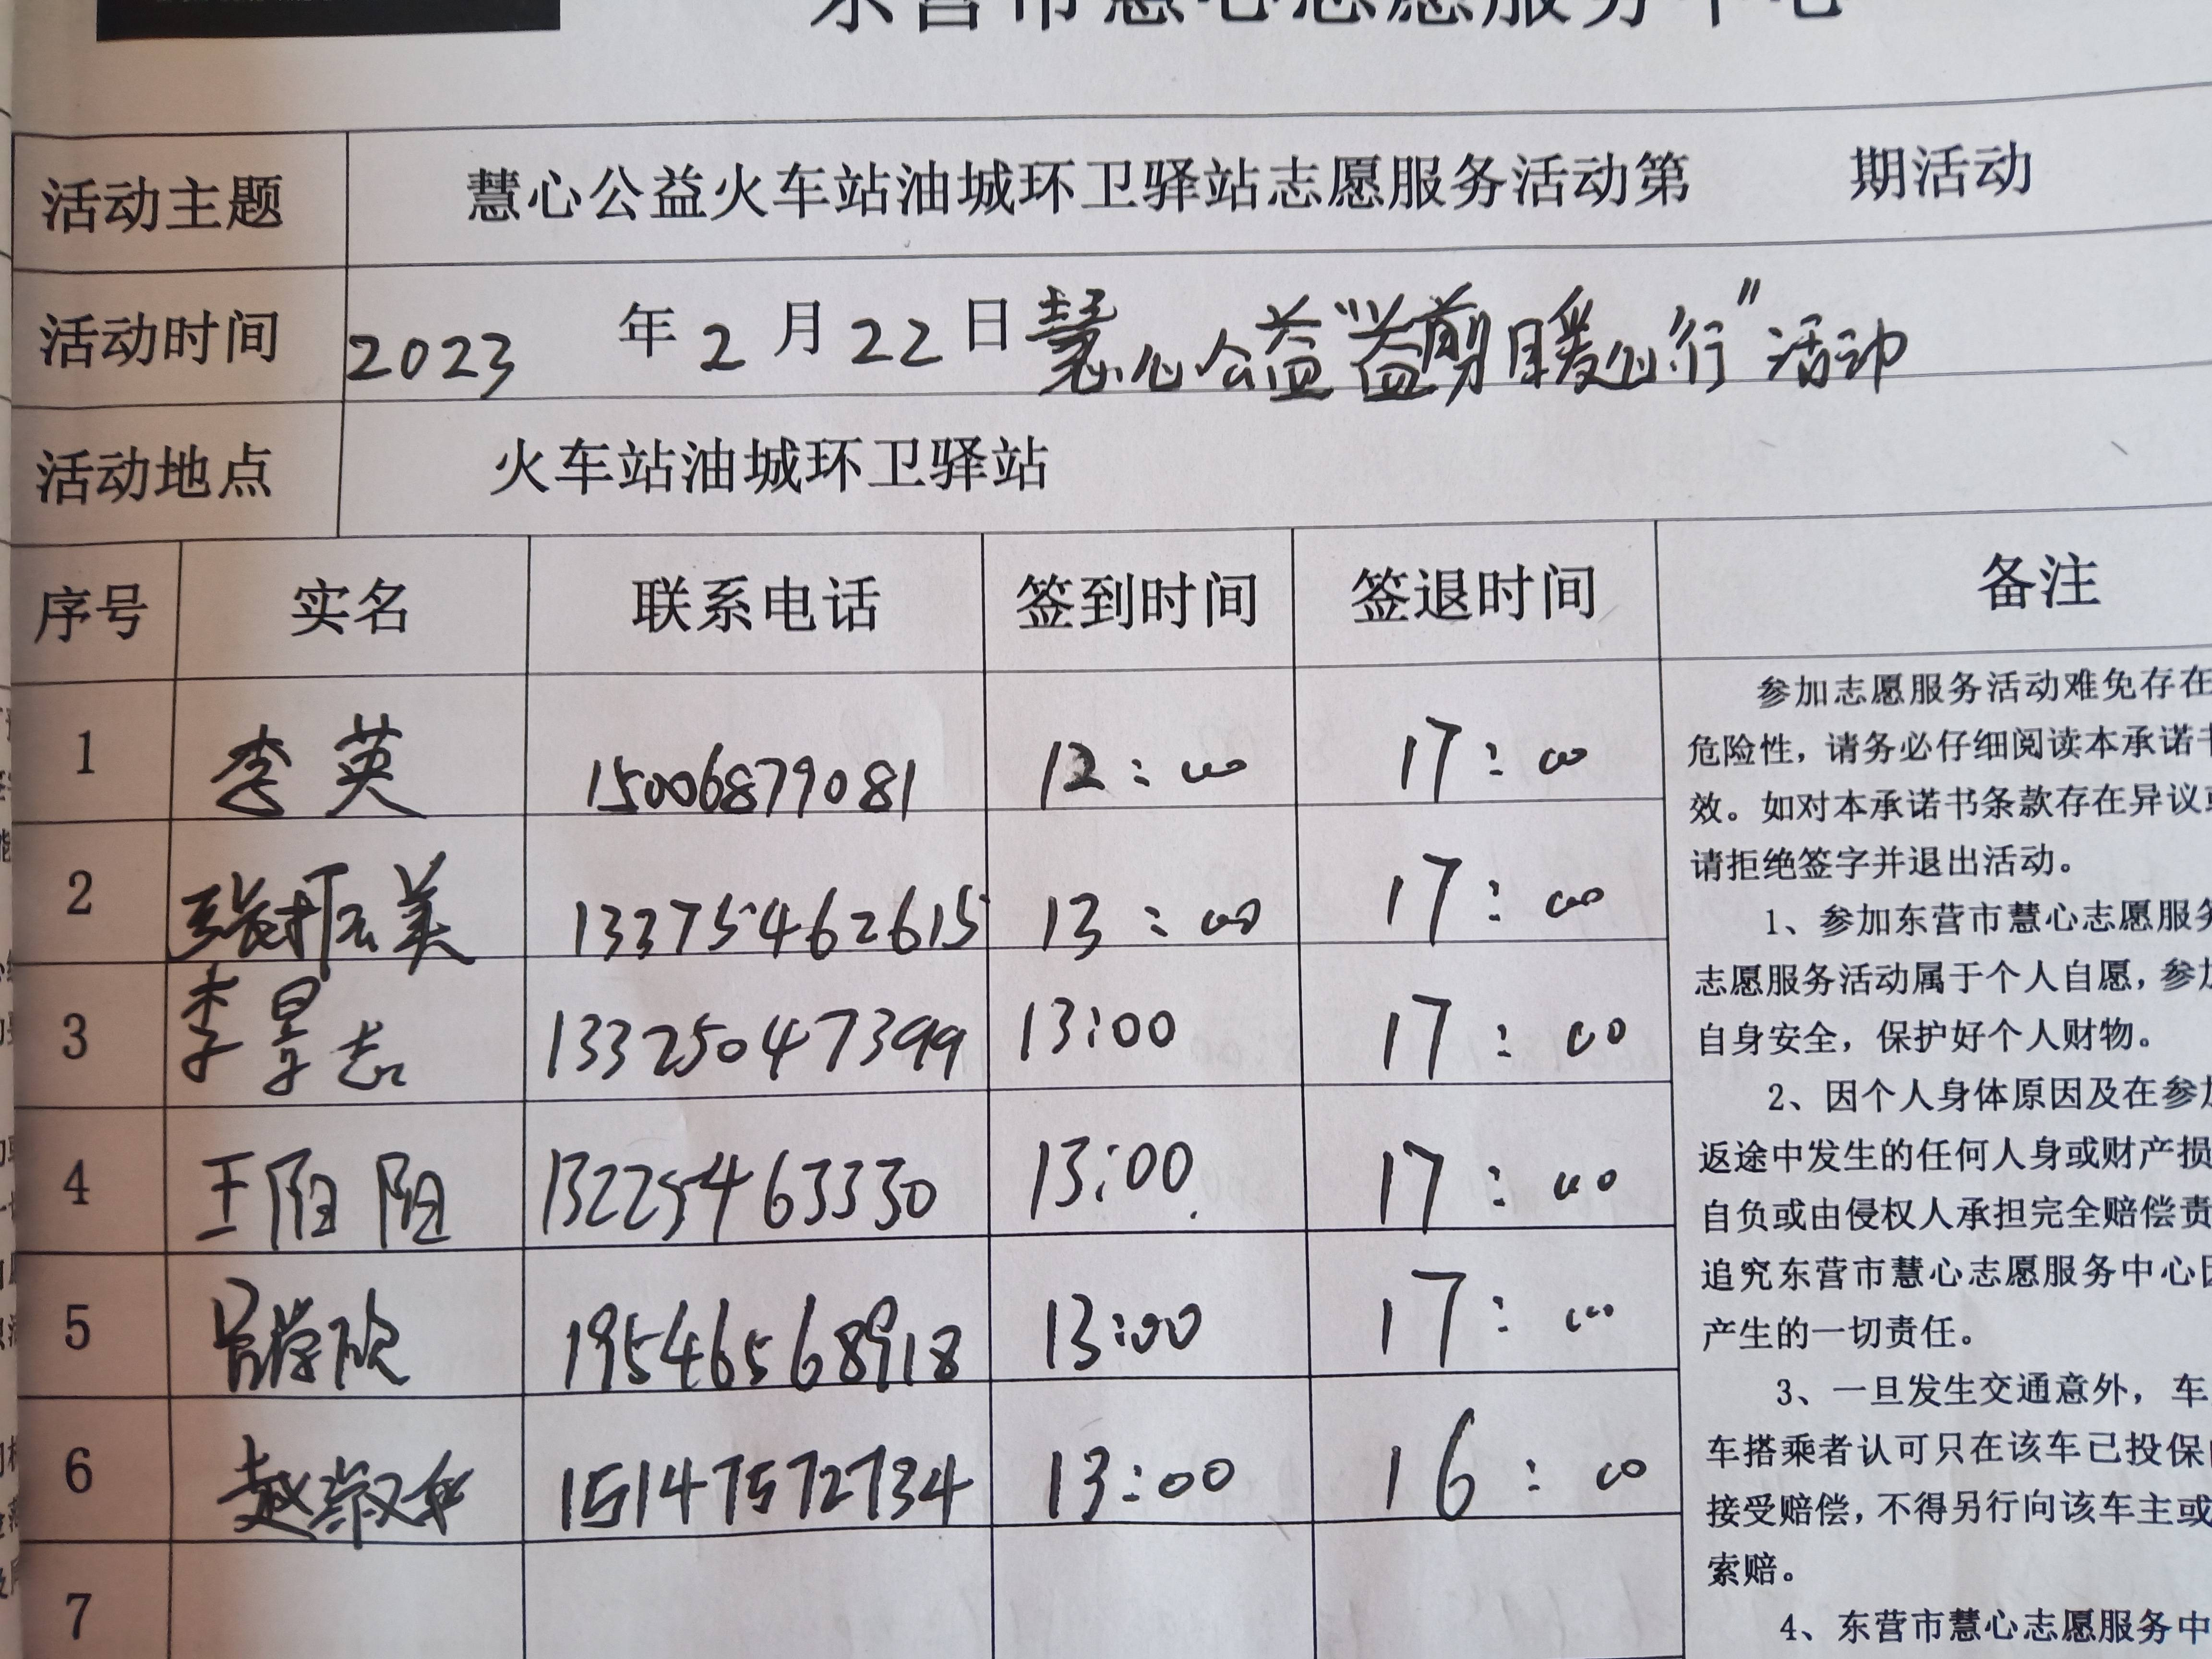 东营市慧心志愿服务中心
活动主题 慧心公益火车站油城环卫驿站志愿服务活动第 期活动
活动时间 2023 年 2 月 22 日 慧心公益“益剪暖心行”活动
活动地点 火车站油城环卫驿站
序号 实名 联系电话 签到时间 签退时间 备注
1 李英 15006879081 12:00 17:00
2 张振美 13375462615 13:00 17:00
3 李景志 13325047399 13:00 17:00
4 王阳阳 13225463330 13:00 17:00
5 欣 19546568918 13:00 17:00
6 赵淑 15147572734 13:00 16:00
7
参加志愿服务活动难免存在
危险性，请务必仔细阅读本承诺书
效。如对本承诺书条款存在异议或
请拒绝签字并退出活动。
1、参加东营市慧心志愿服务
志愿服务活动属于个人自愿，参加
自身安全，保护好个人财物。
2、因个人身体原因及在参加
返途中发生的任何人身或财产损
自负或由侵权人承担完全赔偿责
追究东营市慧心志愿服务中心因
产生的一切责任。
3、一旦发生交通意外，车
车搭乘者认可只在该车已投保
接受赔偿，不得另行向该车主或
索赔。
4、东营市慧心志愿服务中